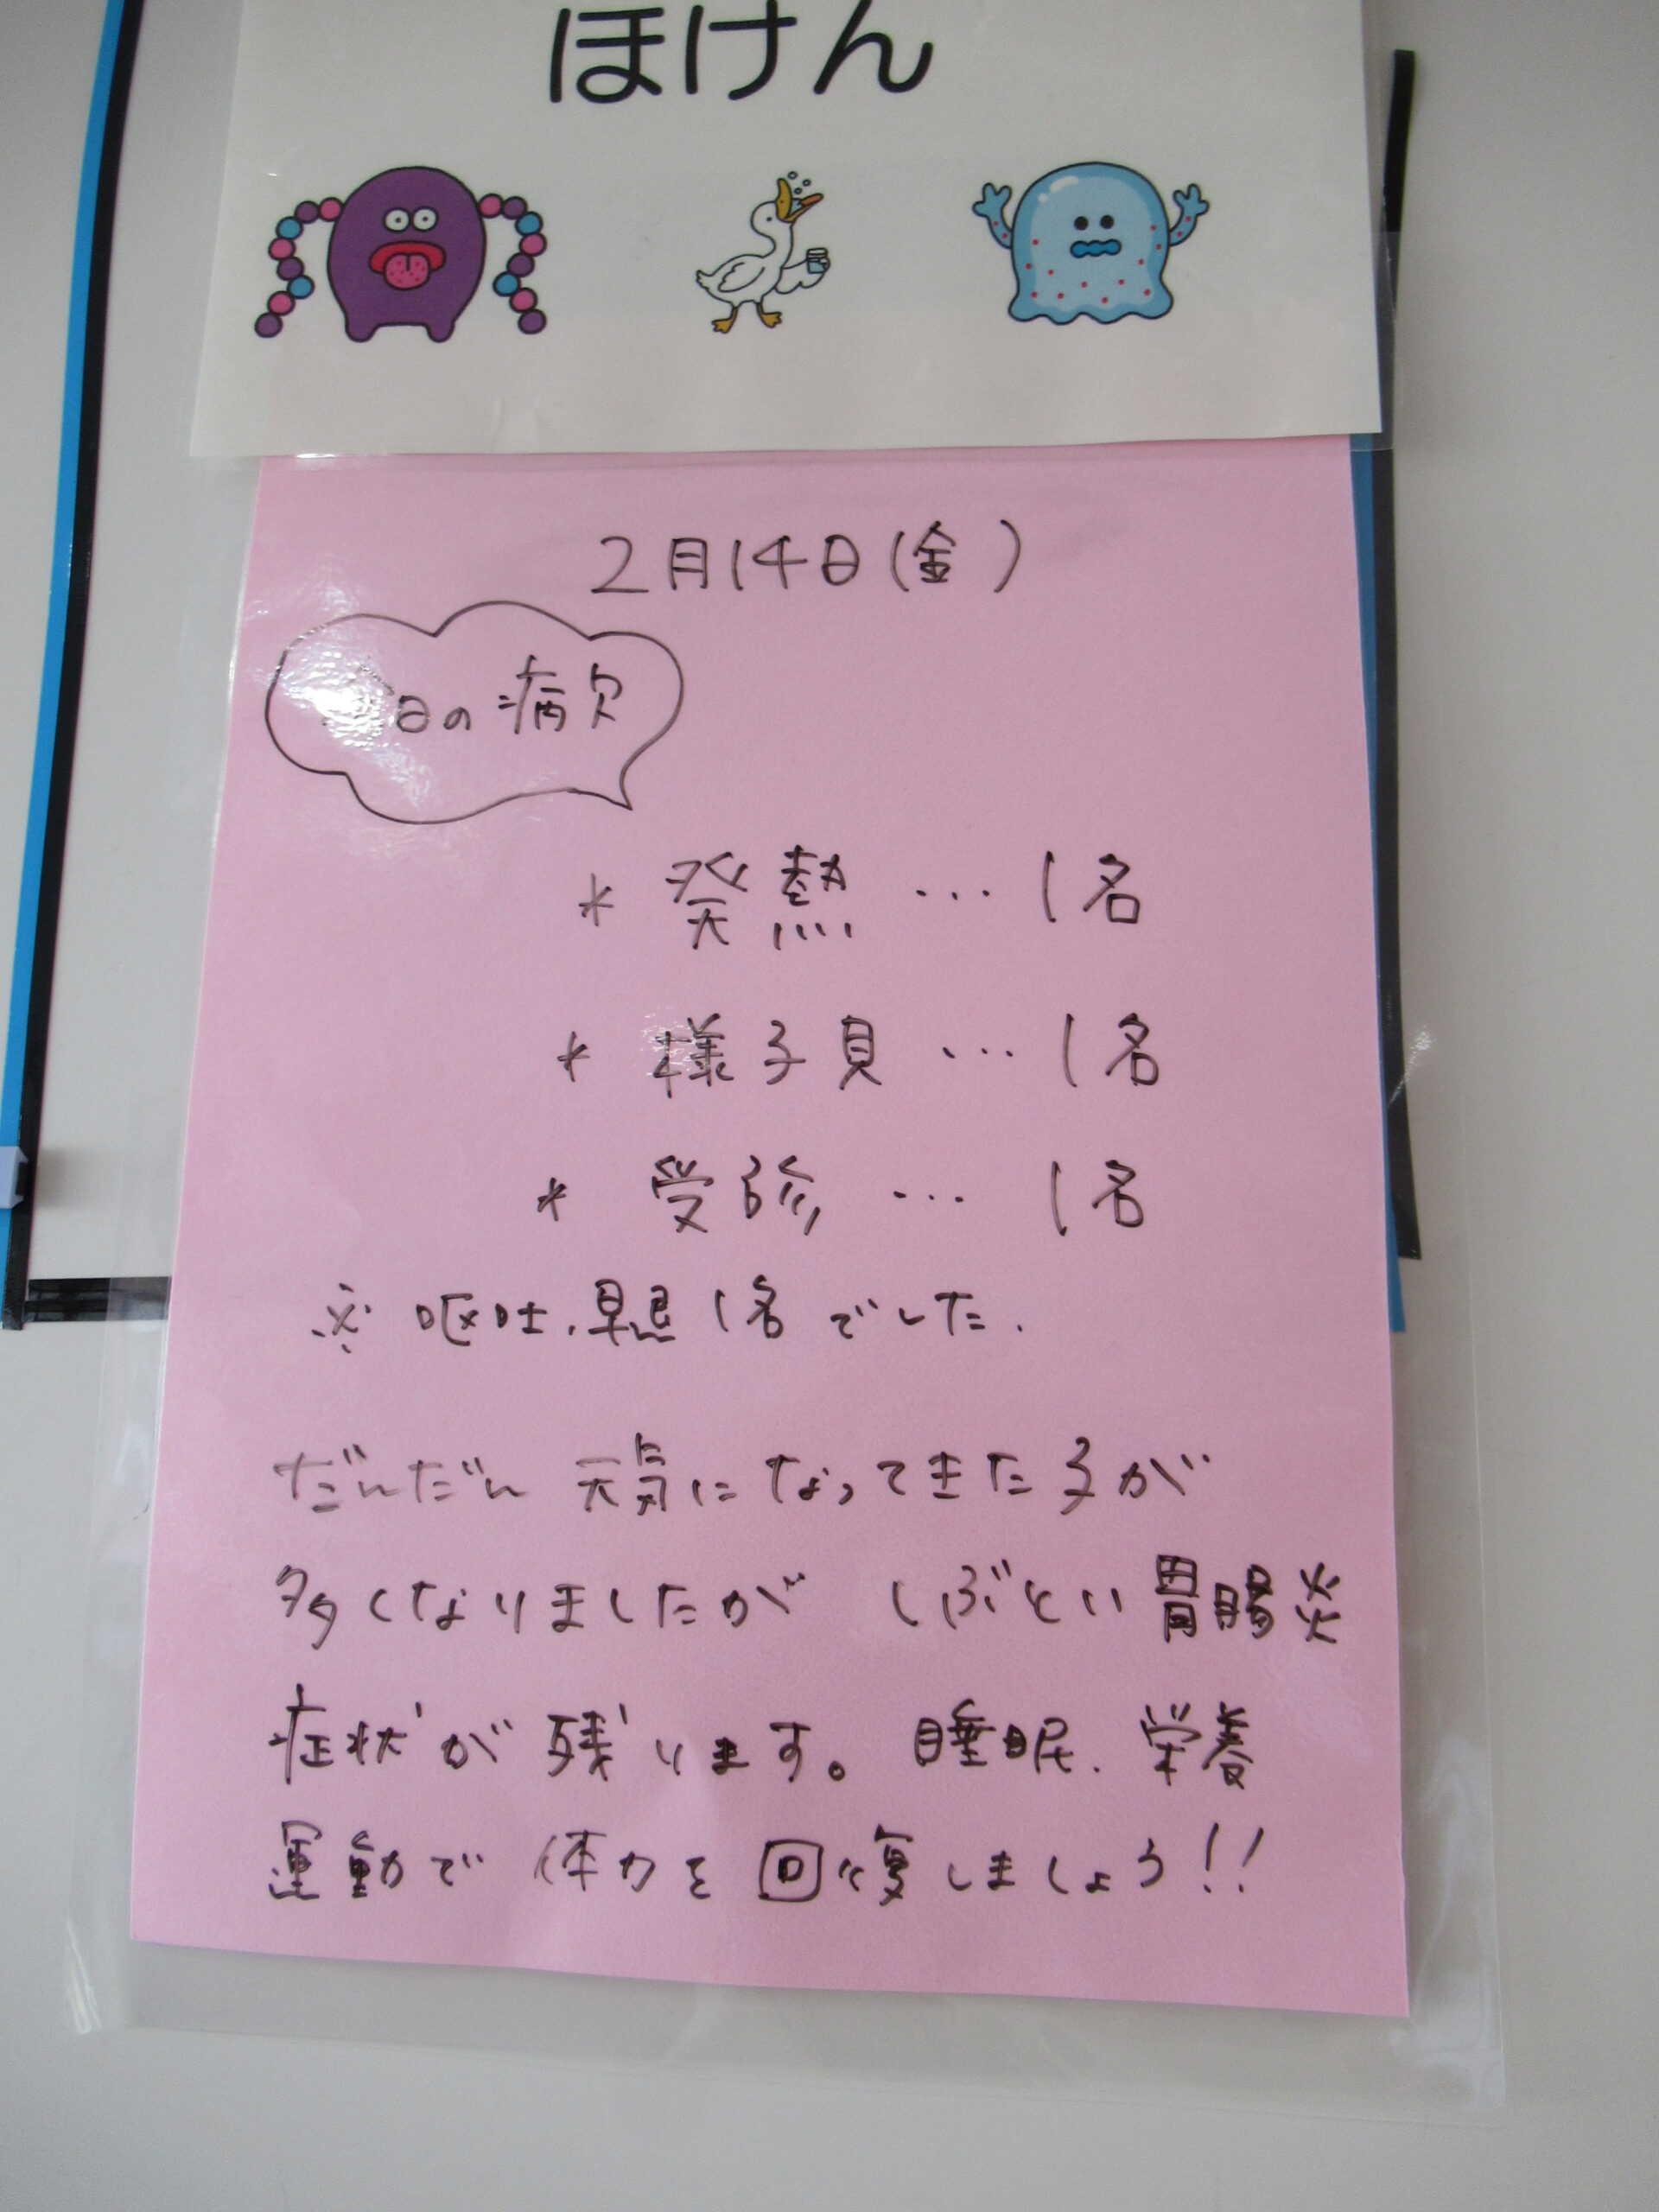 ほけん
2月14日(金)
今日の病欠
* 発熱 … 1名
* 様子見 … 1名
* 受診 … 1名
※ 嘔吐、早退 1名でした.
だんだん 元気になってきた子が
多くなりましたが しぶとい胃腸炎
症状が残ります。睡眠、栄養
運動で 体力を回復しましょう!!